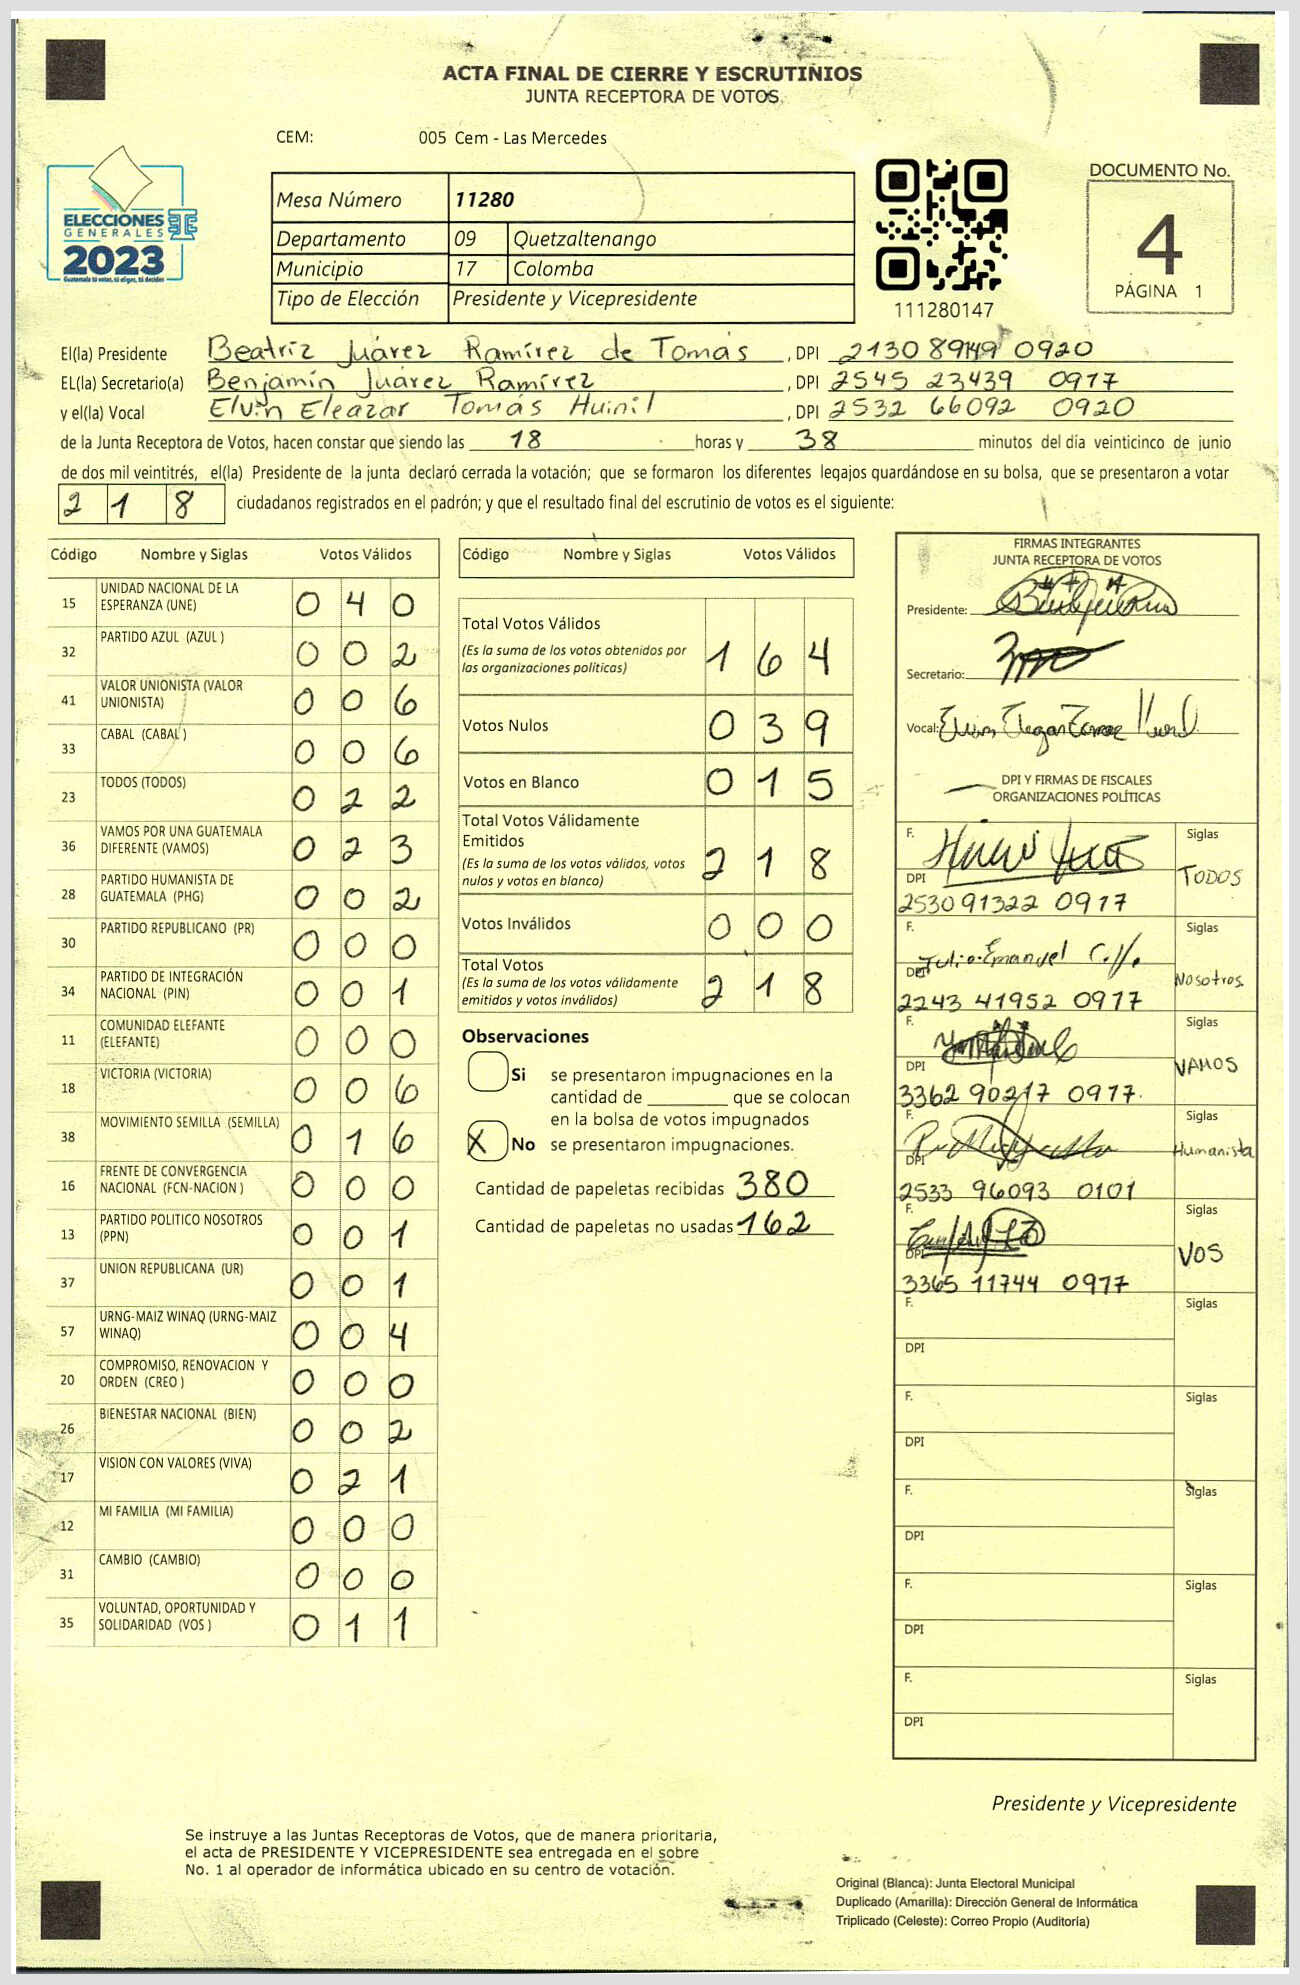 ACTA FINAL DE CIERRE Y ESCRUTINIOS
JUNTA RECEPTORA DE VOTOS
CEM: 005 Cem - Las Mercedes
ELECCIONES
GENERALES
2023
Guatemala tú votas, tú eliges, tú decides
Mesa Número 11280
Departamento 09 Quetzaltenango
Municipio 17 Colomba
Tipo de Elección Presidente y Vicepresidente
111280147
DOCUMENTO No.
4
PÁGINA 1
El(la) Presidente Beatríz Juárez Ramírez de Tomás , DPI 0920
EL(la) Secretario(a) Benjamín Juárez Ramírez , DPI 2545 23439 0917
y el(la) Vocal Elvin Eleazar Tomás Huinil , DPI 2532 66092 0920
de la Junta Receptora de Votos, hacen constar que siendo las 18 horas y 38 minutos del día veinticinco de junio
de dos mil veintitrés, el(la) Presidente de la junta declaró cerrada la votación; que se formaron los diferentes legajos quardándose en su bolsa, que se presentaron a votar
218 ciudadanos registrados en el padrón; y que el resultado final del escrutinio de votos es el siguiente:
Código Nombre y Siglas Votos Válidos
15 UNIDAD NACIONAL DE LA ESPERANZA (UNE) 0 4 0
32 PARTIDO AZUL (AZUL ) 0 0 2
41 VALOR UNIONISTA (VALOR UNIONISTA) 0 0 6
33 CABAL (CABAL ) 0 0 6
23 TODOS (TODOS) 0 2 2
36 VAMOS POR UNA GUATEMALA DIFERENTE (VAMOS) 0 2 3
28 PARTIDO HUMANISTA DE GUATEMALA (PHG) 0 0 2
30 PARTIDO REPUBLICANO (PR) 0 0 0
34 PARTIDO DE INTEGRACIÓN NACIONAL (PIN) 0 0 1
11 COMUNIDAD ELEFANTE (ELEFANTE) 0 0 0
18 VICTORIA (VICTORIA) 0 0 6
38 MOVIMIENTO SEMILLA (SEMILLA) 0 1 6
16 FRENTE DE CONVERGENCIA NACIONAL (FCN-NACION ) 0 0 0
13 PARTIDO POLITICO NOSOTROS (PPN) 0 0 1
37 UNION REPUBLICANA (UR) 0 0 1
57 URNG-MAIZ WINAQ (URNG-MAIZ WINAQ) 0 0 4
20 COMPROMISO, RENOVACION Y ORDEN (CREO ) 0 0 0
26 BIENESTAR NACIONAL (BIEN) 0 0 2
17 VISION CON VALORES (VIVA) 0 2 1
12 MI FAMILIA (MI FAMILIA) 0 0 0
31 CAMBIO (CAMBIO) 0 0 0
35 VOLUNTAD, OPORTUNIDAD Y SOLIDARIDAD (VOS ) 0 1 1
Código Nombre y Siglas Votos Válidos
Total Votos Válidos 1 6 4
(Es la suma de los votos obtenidos por
las organizaciones políticas)
Votos Nulos 0 3 9
Votos en Blanco 0 1 5
Total Votos Válidamente
Emitidos 2 1 8
(Es la suma de los votos válidos, votos
nulos y votos en blanco)
Votos Inválidos 0 0 0
Total Votos 2 1 8
(Es la suma de los votos válidamente
emitidos y votos inválidos)
Observaciones
Si se presentaron impugnaciones en la
cantidad de ________ que se colocan
en la bolsa de votos impugnados
X No se presentaron impugnaciones.
Cantidad de papeletas recibidas 380
Cantidad de papeletas no usadas 162
FIRMAS INTEGRANTES
JUNTA RECEPTORA DE VOTOS
Presidente:
Secretario:
Vocal:
DPI Y FIRMAS DE FISCALES
ORGANIZACIONES POLÍTICAS
F. Siglas
DPI TODOS
2530 91322 0917
F. Julio Emanuel Siglas
DPI Nosotros
2243 41952 0977
F. Siglas
DPI VAMOS
3362 90217 0977
F. Siglas
DPI Humanista
2533 96093 0101
F. Siglas
DPI VOS
3365 11744 0977
F. Siglas
DPI
F. Siglas
DPI
F. Siglas
DPI
F. Siglas
DPI
F. Siglas
DPI
Presidente y Vicepresidente
Se instruye a las Juntas Receptoras de Votos, que de manera prioritaria,
el acta de PRESIDENTE Y VICEPRESIDENTE sea entregada en el sobre
No. 1 al operador de informática ubicado en su centro de votación.
Original (Blanca): Junta Electoral Municipal
Duplicado (Amarilla): Dirección General de Informática
Triplicado (Celeste): Correo Propio (Auditoría)